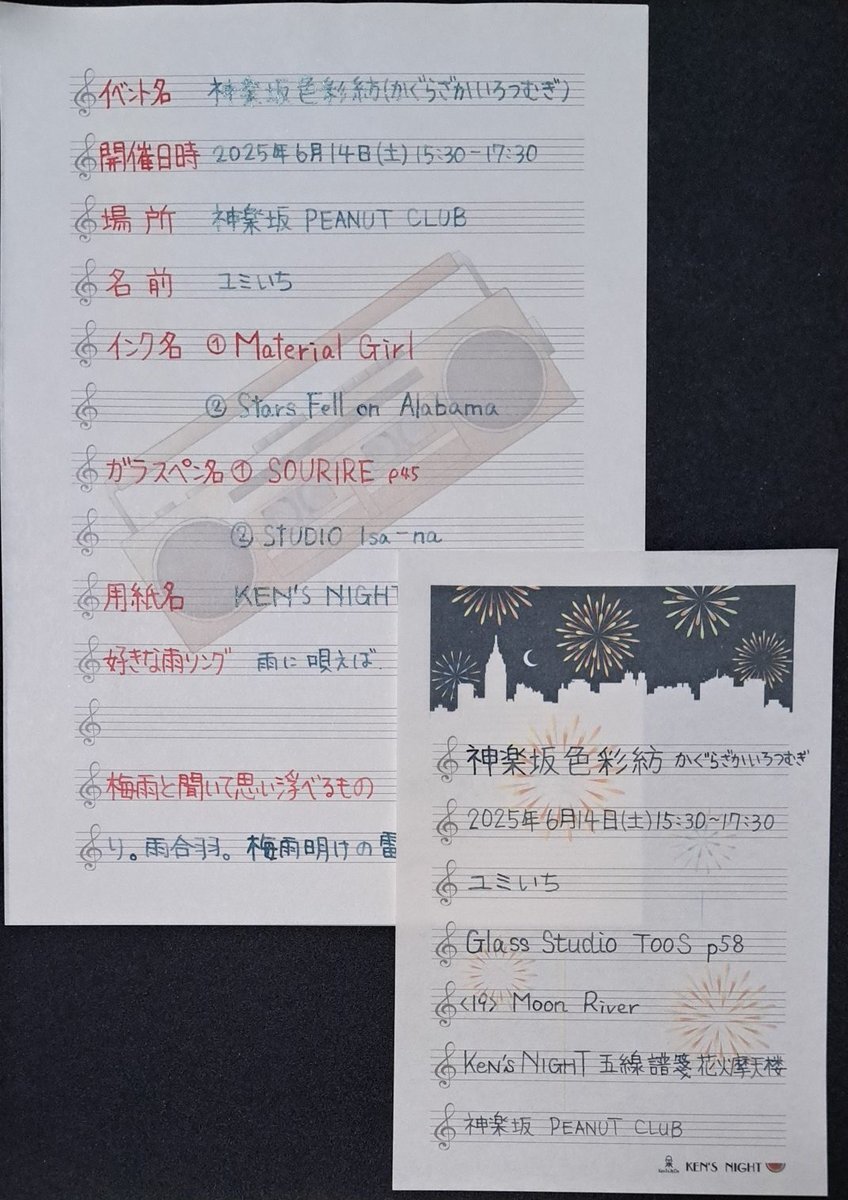 イベント名 神楽坂色彩紡(かぐらざかいろつむぎ)
開催日時 2025年6月14日(土)15:30-17:30
場所 神楽坂 PEANUT CLUB
名前 ユミいち
インク名 ① Material Girl
② Stars Fell on Alabama
ガラスペン名 ① SOURIRE p45
② STUDIO Isa-na
用紙名 KEN'S NIGHT
好きな雨リング 雨に唄えば.
梅雨と聞いて思い浮べるもの
り。雨合羽。梅雨明けの雷
神楽坂色彩紡 かぐらざかいろつむぎ
2025年6月14日(土)15:30~17:30
ユミいち
Glass Studio TooS p58
<19> Moon River
KEN'S NIGHT 五線譜箋 花火摩天楼
神楽坂 PEANUT CLUB
KEN'S NIGHT